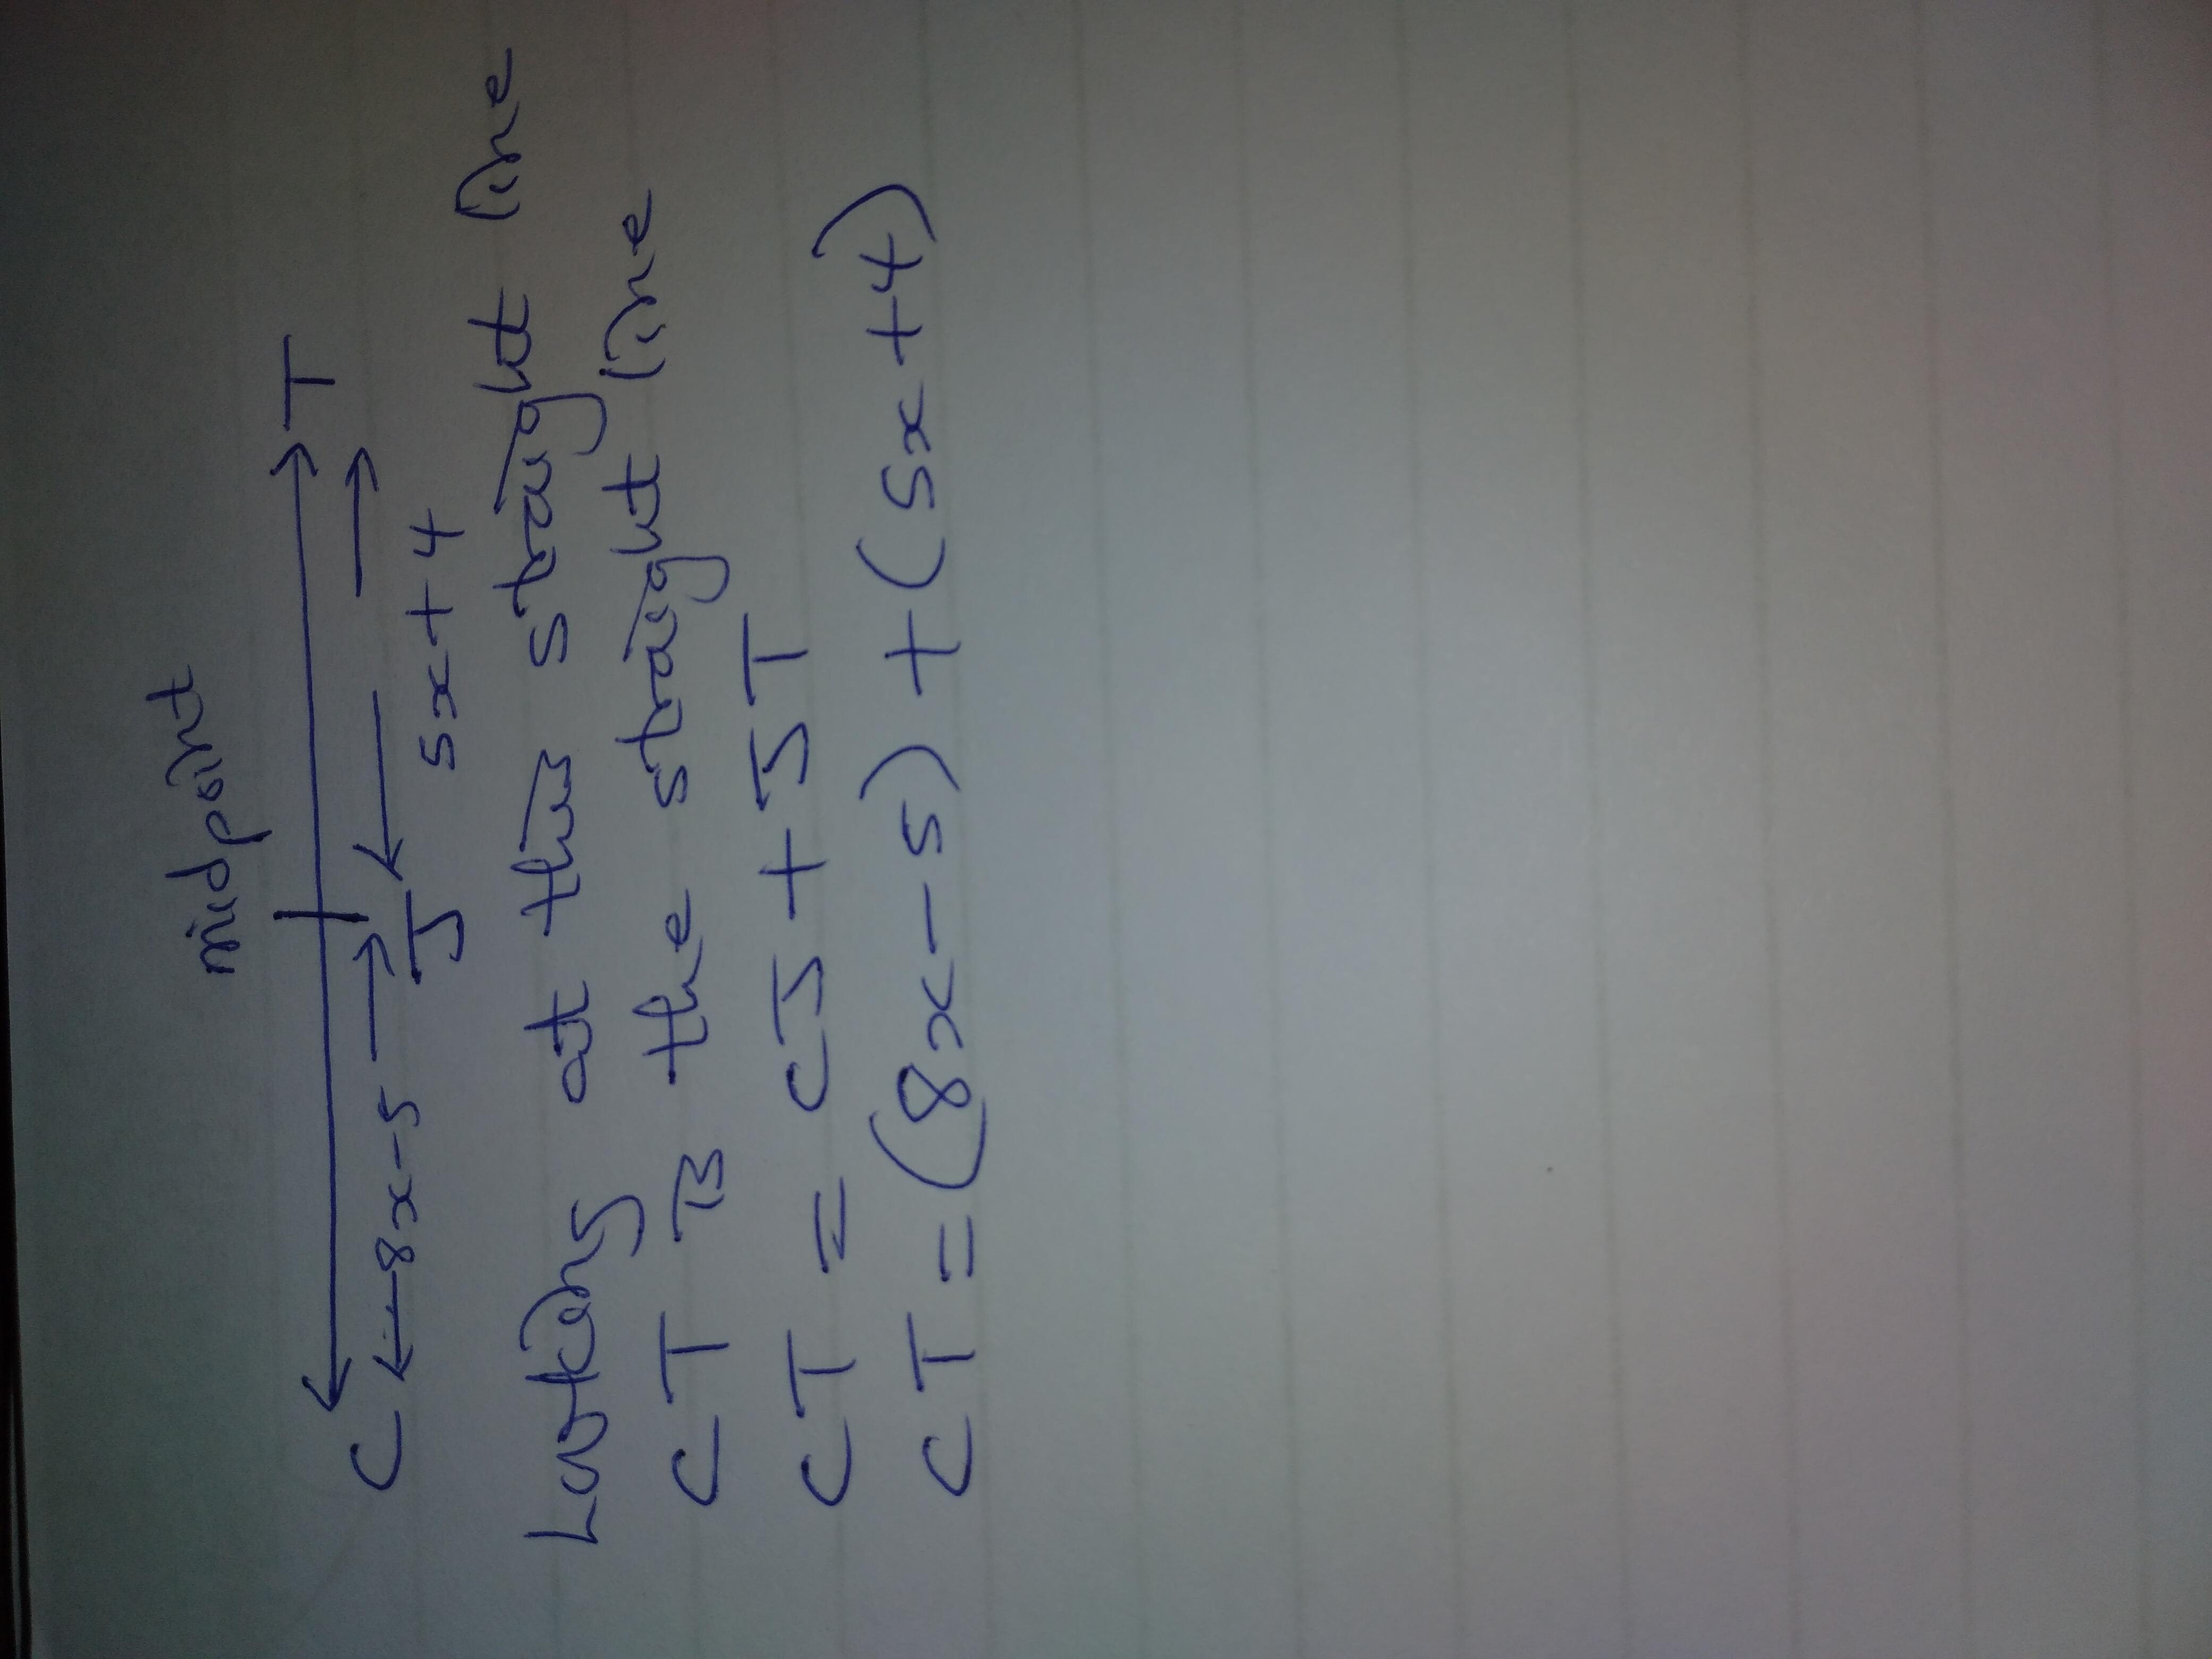 midpoint
C T
8x-5 J 5x+4
Looking at this straight line
CT is the straight line
CT = CJ + JT
CT = (8x-5) + (5x+4)